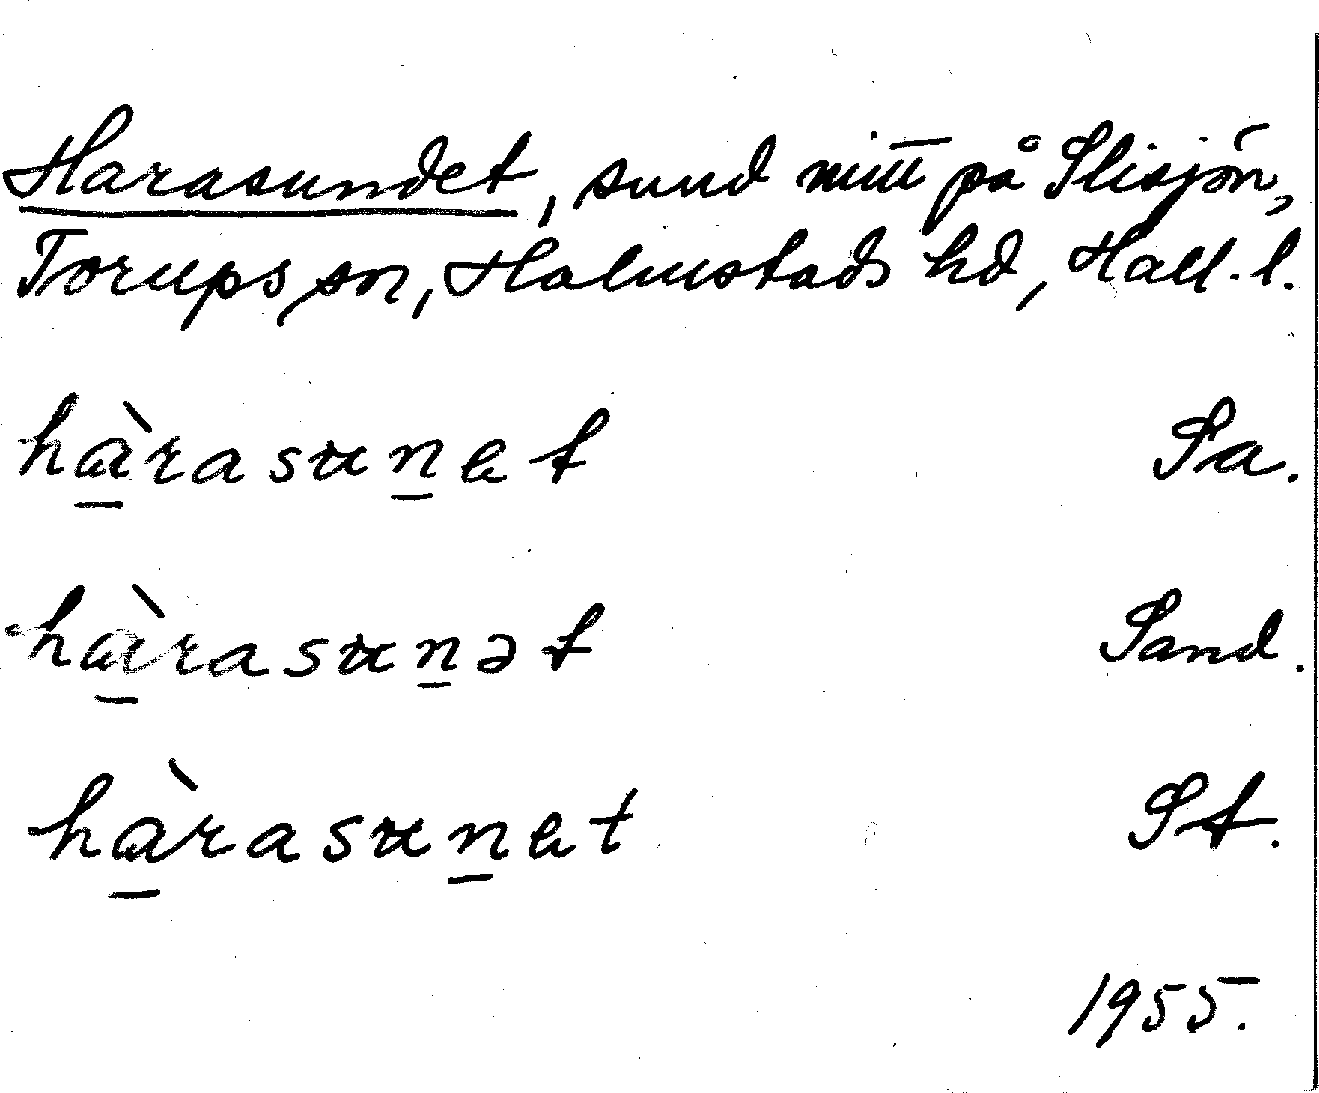 Harasundet, sund mitt på Slisjön,
Torups sn, Halmstads hd, Hall. l.
hàrasunet Sa.
hàrasunət Sand.
hàrasunet St.
1955.